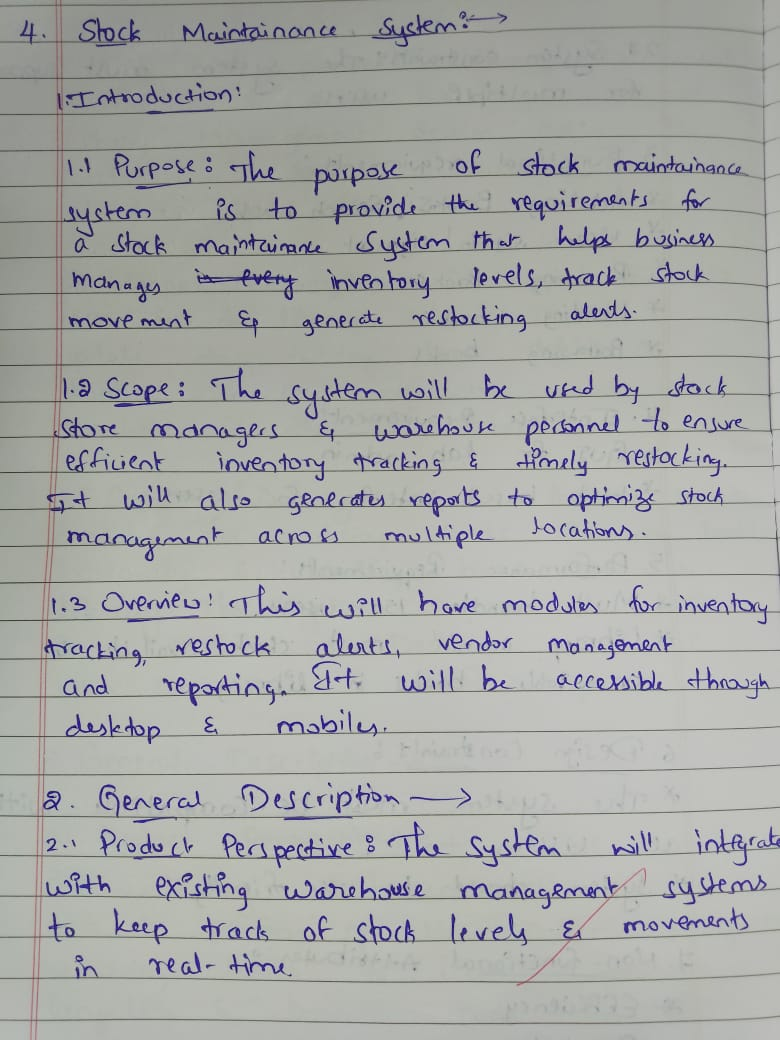 4. Stock Maintainance System:→
1. Introduction:
1.1 Purpose: The purpose of stock maintainance
system is to provide the requirements for
a stock maintainance system that helps business
manages is every inventory levels, track stock
movement & generate restocking alerts.
1.2 Scope: The system will be used by stock
store managers & warehouse personnel to ensure
efficient inventory tracking & timely restocking.
It will also generates reports to optimize stock
management across multiple locations.
1.3 Overview: This will have modules for inventory
tracking, restock alerts, vendor management
and reporting. It will be accessible through
desktop & mobiles.
2. General Description →
2.1 Product Perspective: The system will integrate
with existing warehouse management systems
to keep track of stock levels & movements
in real-time.